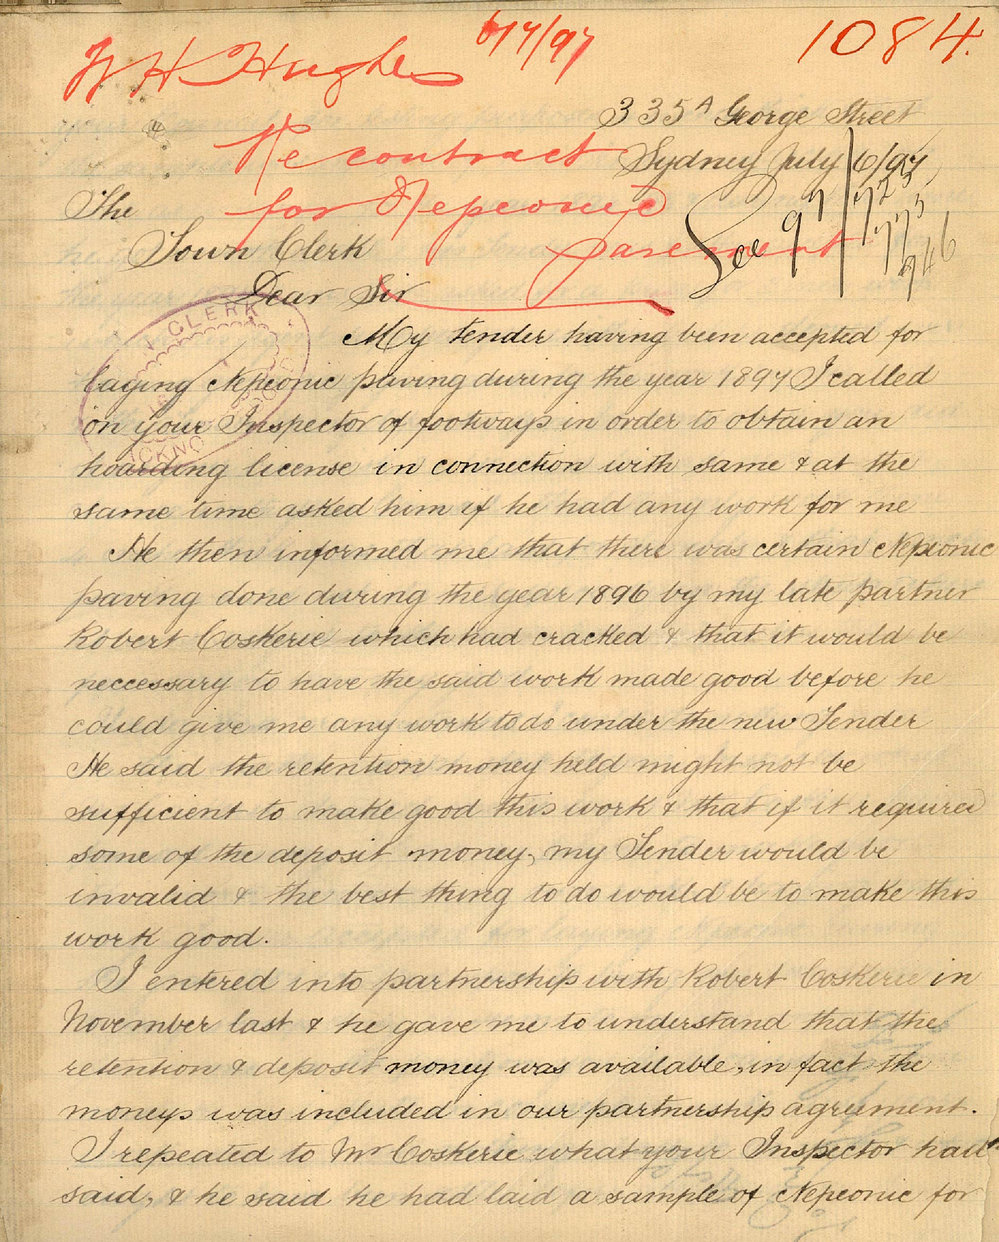 W H Hughes 6/7/97 1084.
335A George Street
Re contract Sydney July 6/97
The for Nepeonic
See 97/723,
773
746
Town Clerk pavement
Dear Sir
CLERK
My Tender having been accepted for
laying Nepeonic paving during the year 1897 I called
on your Inspector of footways in order to obtain an
hoarding license in connection with same & at the
same time asked him if he had any work for me
He then informed me that there was certain Nepeonic
paving done during the year 1896 by my late partner
Robert Coskerie which had cracked & that it would be
neccessary to have the said work made good before he
could give me any work to do under the new Tender
He said the retention money held might not be
sufficient to make good this work & that if it required
some of the deposit money, my Tender would be
invalid & the best thing to do would be to make this
work good.
I entered into partnership with Robert Coskerie in
November last & he gave me to understand that the
retention & deposit money was available, in fact the
moneys was included in our partnership agreement.
I repeated to Mr Coskerie what your Inspector had
said, & he said he had laid a sample of Nepeonic for